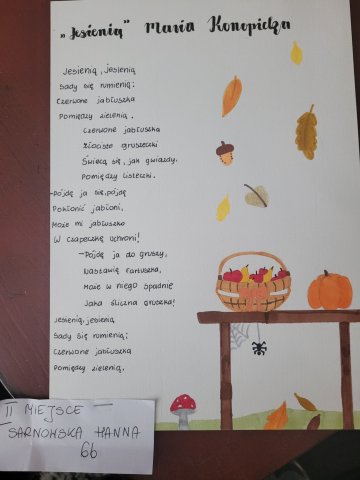 „Jesienią" Maria Konopnicka
Jesienią, jesienią
Sady się rumienią:
Czerwone jabłuszka
Pomiędzy zielenią.
Czerwone jabłuszka
Złociste gruszeczki
Świecą się, jak gwiazdy,
Pomiędzy listeczki.
-Pójdę ja się, pójdę
Pokłonić jabłoni,
Może mi jabłuszko
W czapeczkę uroni!
-Pójdę ja do gruszy,
Nastawię fartuszka,
Może w niego spadnie
Jaka śliczna gruszka!
Jesienią, jesienią
Sady się rumienią:
Czerwone jabłuszka
Pomiędzy zielenią.
II MIEJSCE
SARNOWSKA HANNA
6b